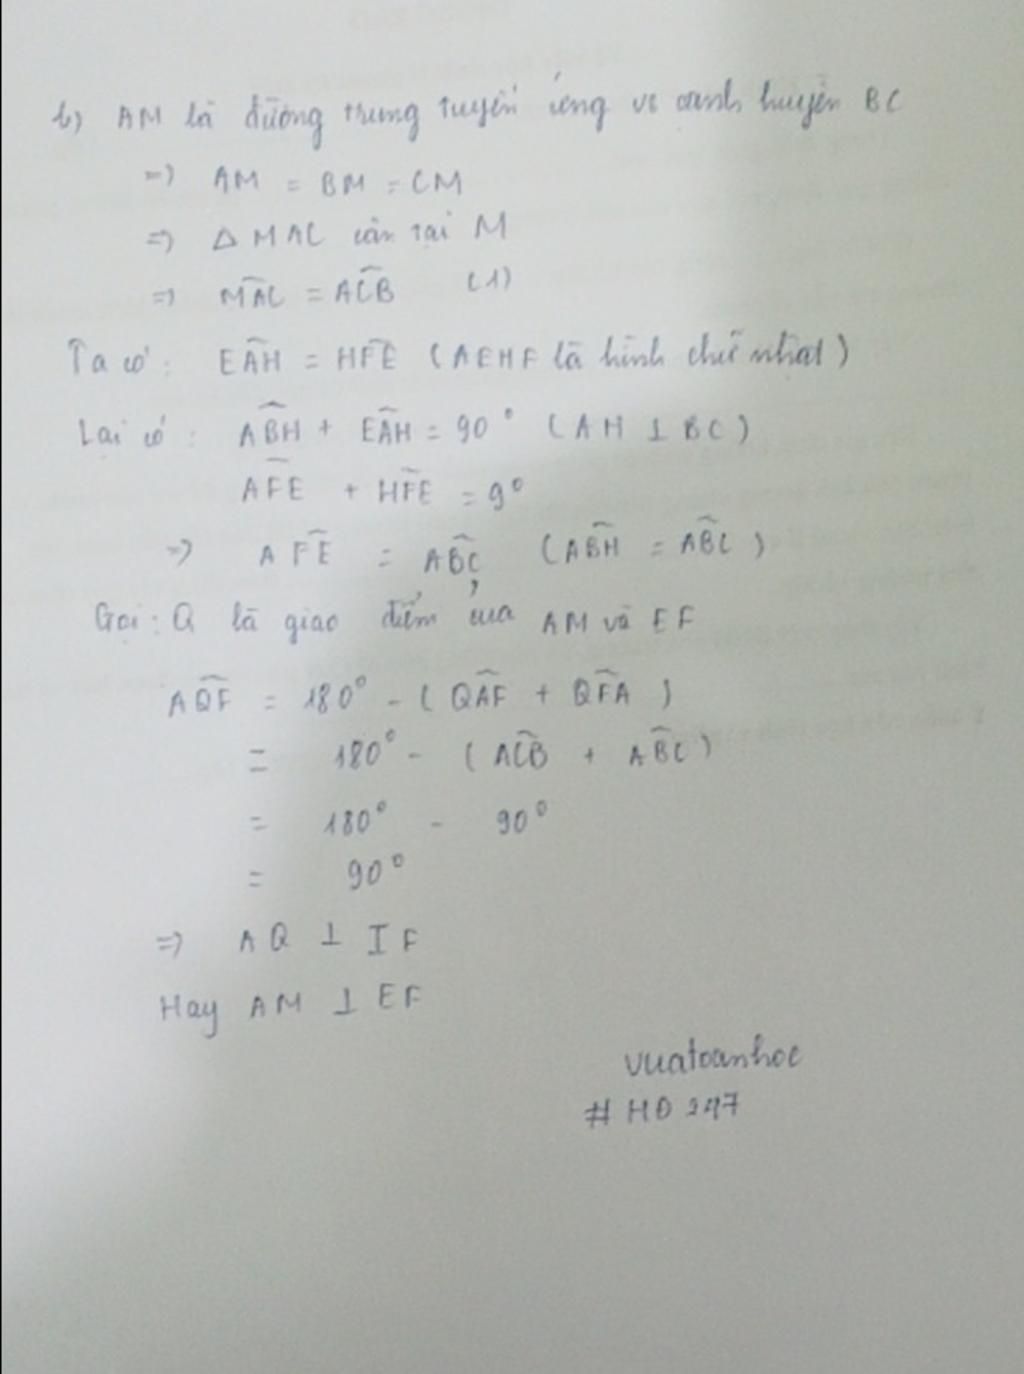 b) AM là đường trung tuyến ứng vs cạnh huyền BC
=) AM = BM = CM
=) Δ MAC cân tại M
=) M͡AC = AC͡B (1)
Ta có: EA͡H = HF͡E (AEHF là hình chữ nhật)
Lại có: AB͡H + EA͡H = 90° (AH ⊥ BC)
AF͡E + HF͡E = 9°
=) AF͡E = AB͡C (AB͡H = AB͡C)
Gọi: Q là giao điểm của AM và EF
AQ͡F = 180° - (QA͡F + QF͡A)
= 180° - (AC͡B + AB͡C)
= 180° - 90°
= 90°
=) AQ ⊥ IF
Hay AM ⊥ EF
vuatoanhoc
# HD 247